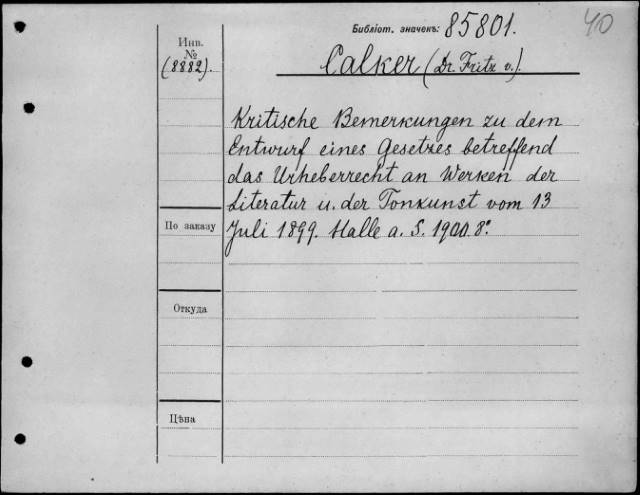 Библіот. значекъ: 85801.
40
Инв.
№
(8882).
Calker (Dr. Fritz v.).
Kritische Bemerkungen zu dem
Entwurf eines Gesetzes betreffend
das Urheberrecht an Werken der
Literatur u. der Tonkunst vom 13
Juli 1899. Halle a. S. 1900. 8º
По заказу
Откуда
Цѣна